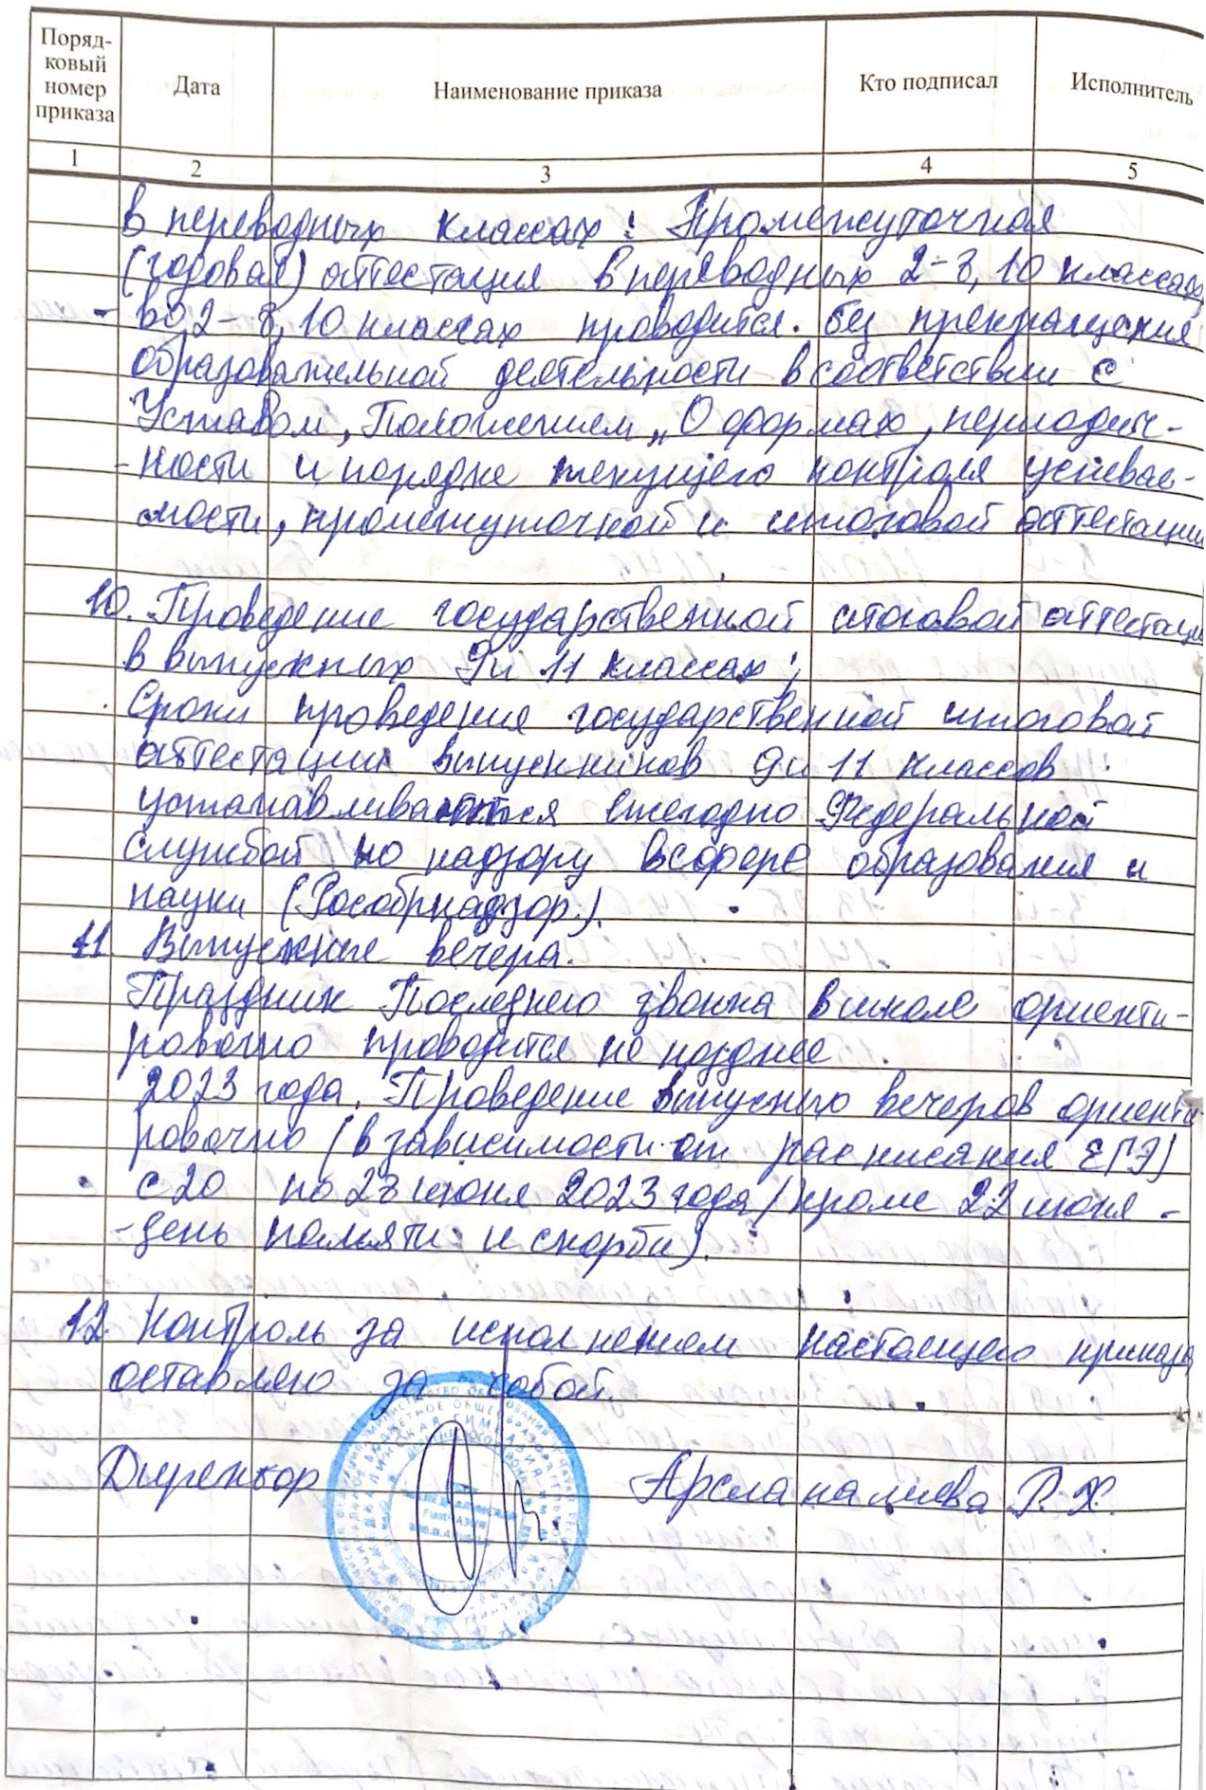 Поряд-
ковый
номер
приказа
Дата
Наименование приказа
Кто подписал
Исполнитель
1
2
3
4
5
в переводных классах: Промежуточная
(годовая) аттестация в переводных 2-8, 10 классах
- во 2-8, 10 классах проводится без прекращения
образовательной деятельности в соответствии с
Уставом, Положением „О формах, периодич-
-ности и порядке текущего контроля успевае-
мости, промежуточной и итоговой аттестации
10. Проведение государственной итоговой аттестаци
в выпускных 9 и 11 классах;
Сроки проведения государственной итоговой
аттестации выпускников 9 и 11 классов
устанавливаются ежегодно Федеральной
службой по надзору в сфере образования и
науки (Рособрнадзор.).
11. Выпускные вечера.
Праздник Последнего звонка в школе ориенти-
ровочно проводится не позднее
2023 года. Проведение выпускных вечеров ориенти
ровочно (в зависимости от расписания ЕГЭ)
с 20 по 23 июня 2023 года (кроме 22 июня -
-день памяти и скорби).
12. Контроль за исполнением настоящего приказа
оставляю за собой.
Директор Арсланалиева Р. Х.